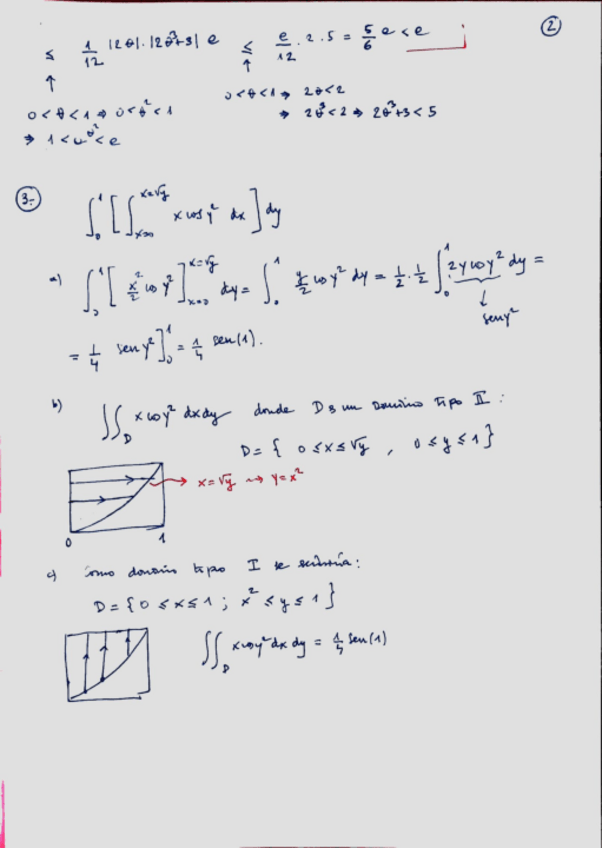 ②
≤ 1/12 |2θ|·|2θ³+3| e ≤ e/12 · 2 · 5 = 5/6 e < e
↑ ↑
0<θ<1 ⇒ 0<θ²<1 0<θ<1 ⇒ 2θ<2
⇒ 1<e^θ²<e ⇒ 2θ³<2 ⇒ 2θ³+3<5
3.- ∫₀¹ [∫_{x=0}^{x=√y} x cos y² dx] dy
a) ∫₀¹ [x²/2 cos y²]_{x=0}^{x=√y} dy = ∫₀¹ y/2 cos y² dy = 1/2 · 1/2 ∫₀¹ 2y cos y² dy =
↓
sen y²
= 1/4 sen y²]₀¹ = 1/4 sen(1).
b) ∬_D x cos y² dx dy donde D es un Dominio tipo II:
D = { 0≤x≤√y , 0≤y≤1 }
→ x=√y ⇝ y=x²
0 1
c) Como dominio tipo I se escribiría:
D = {0≤x≤1 ; x²≤y≤1}
∬_D x cos y² dx dy = 1/4 sen(1)